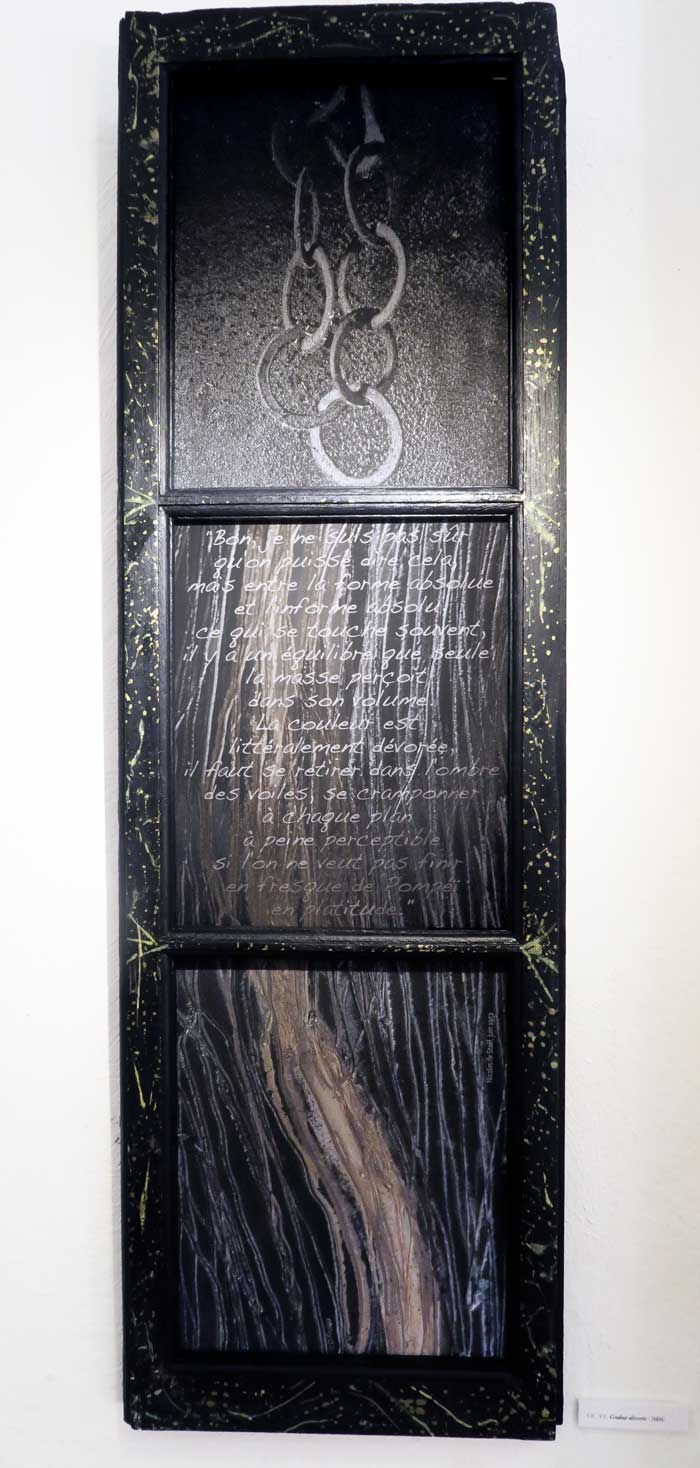 "Bon, je ne suis pas sûr
qu'on puisse dire cela,
mais entre la forme absolue
et l'informe absolu
ce qui se touche souvent,
il y a un équilibre que seule
la masse perçoit
dans son volume.
La couleur est
littéralement dévorée,
il faut se retirer dans l'ombre
des voiles, se cramponner
à chaque plan
à peine perceptible
si l'on ne veut pas finir
en fresque de Pompéï
en platitude."
Nicolas de Staël, juin 1952
Couleur dévorée